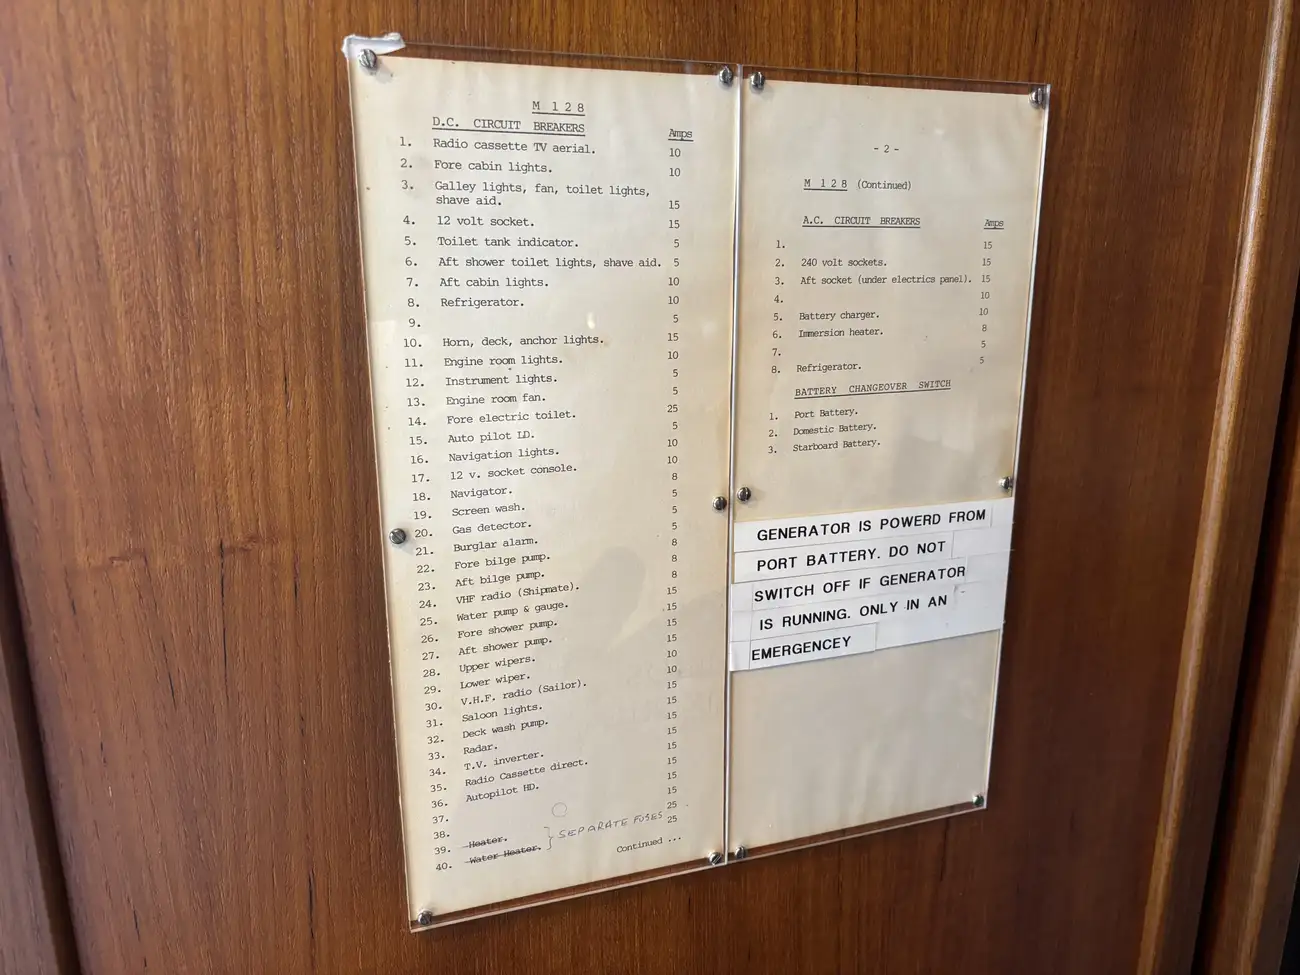 M 128
D.C. CIRCUIT BREAKERS Amps
1. Radio cassette TV aerial. 10
2. Fore cabin lights. 10
3. Galley lights, fan, toilet lights,
shave aid. 15
4. 12 volt socket. 15
5. Toilet tank indicator. 5
6. Aft shower toilet lights, shave aid. 5
7. Aft cabin lights. 10
8. Refrigerator. 10
9. 5
10. Horn, deck, anchor lights. 15
11. Engine room lights. 10
12. Instrument lights. 5
13. Engine room fan. 5
14. Fore electric toilet. 25
15. Auto pilot LD. 5
16. Navigation lights. 10
17. 12 v. socket console. 10
18. Navigator. 8
19. Screen wash. 5
20. Gas detector. 5
21. Burglar alarm. 5
22. Fore bilge pump. 8
23. Aft bilge pump. 8
24. VHF radio (Shipmate). 8
25. Water pump & gauge. 15
26. Fore shower pump. 15
27. Aft shower pump. 15
28. Upper wipers. 15
29. Lower wiper. 10
30. V.H.F. radio (Sailor). 10
31. Saloon lights. 15
32. Deck wash pump. 15
33. Radar. 15
34. T.V. inverter. 15
35. Radio Cassette direct. 15
36. Autopilot HD. 15
37. 15
38. 15
39. Heater. 25
40. Water Heater. 25
SEPARATE FUSES
Continued ...
- 2 -
M 128 (Continued)
A.C. CIRCUIT BREAKERS Amps
1. 15
2. 240 volt sockets. 15
3. Aft socket (under electrics panel). 15
4. 10
5. Battery charger. 10
6. Immersion heater. 8
7. 5
8. Refrigerator. 5
BATTERY CHANGEOVER SWITCH
1. Port Battery.
2. Domestic Battery.
3. Starboard Battery.
GENERATOR IS POWERD FROM
PORT BATTERY. DO NOT
SWITCH OFF IF GENERATOR
IS RUNNING. ONLY IN AN
EMERGENCEY